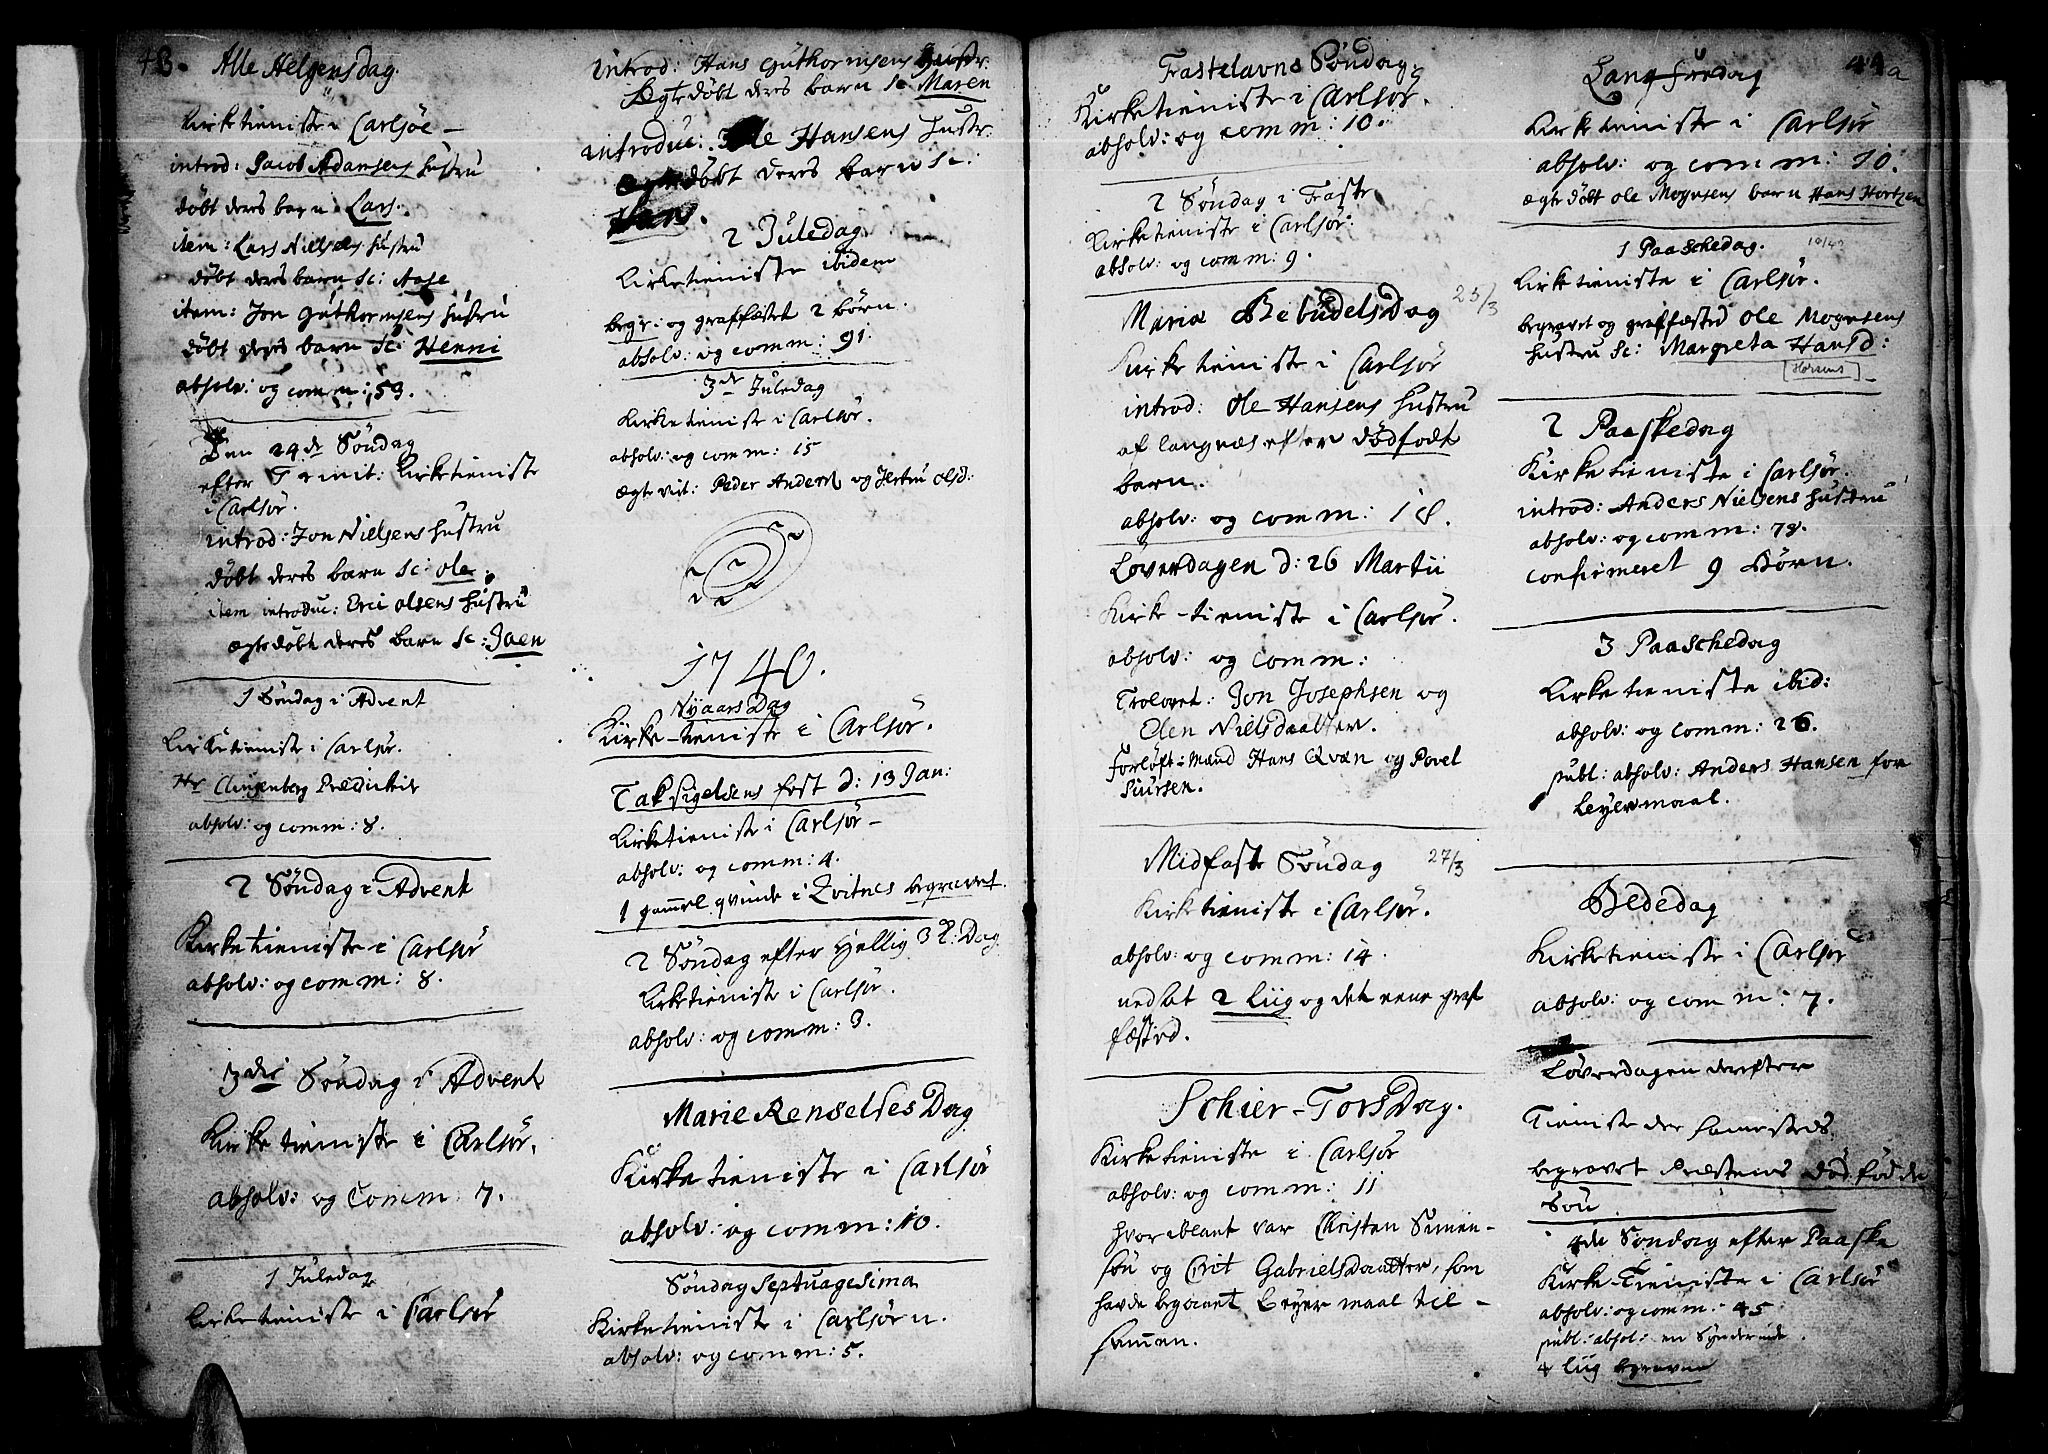 48.
Alle Helgensdag.
Kirketieniste i Carlsöe –
introd: Jacob Adamsens Hustru
döbt deres barn Lars.
item: Lars Nielsens Hustru
döbt deres barn Sc: Aase
item: Jon Guthormsens Hustru
döbt deres barn Sc: Henni
absolv: og comm: 53.
Den 24de Söndag
efter Trinit: Kirketieniste
i Carlsör.
introd: Jon Nielsens Hustru
döbt deres barn Sc: Ole.
item introduc: Erici Olsens Hustru
ægte döbt deres barn Sc: Joen
1 Söndag i Advent
Kirketieniste i Carlsör.
Hr Clingenberg Prædikede
absolv: og comm: 8.
2 Söndag i Advent
Kirketieniste i Carlsör
absolv: og comm: 8.
3die Söndag i Advent
Kirketieniste i Carlsör.
absolv: og Comm: 7.
1 Juledag
Kirketieniste i Carlsör
introd: Hans Guthormsens Hustr.
Ægte döbt deres barn Sc Maren
introduc: Ole Hansens Hustr.
ægte döbt deres barn Sc.
Hans.
2 Juledag
Kirketieniste ibidem
begr: og graffæstet 2 börn.
absolv: og comm: 91.
3de Juledag
Kirketieniste i Carlsör.
absolv: og comm: 15
Ægte viet: Peder Anders: og Olsd:
1740.
Nyaars Dag
Kirke-tieniste i Carlsör.
Taksigelsens fest d: 13 Jan:
Kirketieniste i Carlsör –
absolv: og comm: 4.
1 gammel qvinde i Qvitnes begravet.
2 Söndag efter Hellig 3 K: Dag
Kirketieniste i Carlsör.
absolv: og comm: 3.
Marie Renselses Dag
Kirketieniste i Carlsör
absolv: og comm: 10.
Söndag Septuagesima
Kirketieniste i Carlsöen.
absolv: og comm: 5.
Fastelavns Söndag
Kirketieniste i Carlsör.
absolv: og comm: 10.
2 Söndag i Faste
Kirketieniste i Carlsör.
absolv: og comm: 9.
Mariæ Bebudels Dag 25/3
Kirketieniste i Carlsör
introd: Ole Hansens Hustru
af langnæs efter dödfödt
barn.
absolv: og comm: 18.
Löverdagen d: 26 Martii
Kirke-tieniste i Carlsör.
absolv: og comm:
Trolovet: Jon Josephsen og
Elen Nielsdaatter.
Forlöft: Mænd Hans Qvæn og Povel
Siursen.
Midfaste Söndag 27/3
Kirketieniste i Carlsör.
absolv: og comm: 14.
nedsat 2 Liig og det eene graf
fæsted.
Schier-Tors Dag.
Kirketieniste i Carlsör
absolv: og comm: 11
hvoriblant var Christen Simen-
sön og Berit Gabriels Daatter, som
havde begaaet Leyermaal til-
sammen.
49a
Langfredag
Kirketieniste i Carlsör
absolv: og comm: 10.
ægte döbt Ole Mognsens barn Hans Hortzen
1 Paaschedag. 10/4
Kirketieniste i Carlsör.
begravet og graffæsted Ole Mognsens
Hustru Sc: Margreta Hansd:
[Horsens]
2 Paaskedag
Kirketieniste i Carlsör.
introd: Anders Nielsens Hustru
absolv: og comm: 78.
confirmeret 9 Börn.
3 Paaschedag
Kirketieniste ibid:
absolv: og comm: 26.
publ: absolv: Anders Hansen for
Leyermaal.
Bededag
Kirketieniste i Carlsör
absolv: og comm: 7.
Löverdagen derefter
Tieniste der sammesteds.
begravet Præstens död födde
Sön
4de Söndag efter Paaske
Kirke-Tieniste i Carlsör
absolv: og comm: 45
publ: absol: en Synderinde.
4 Liig begravne